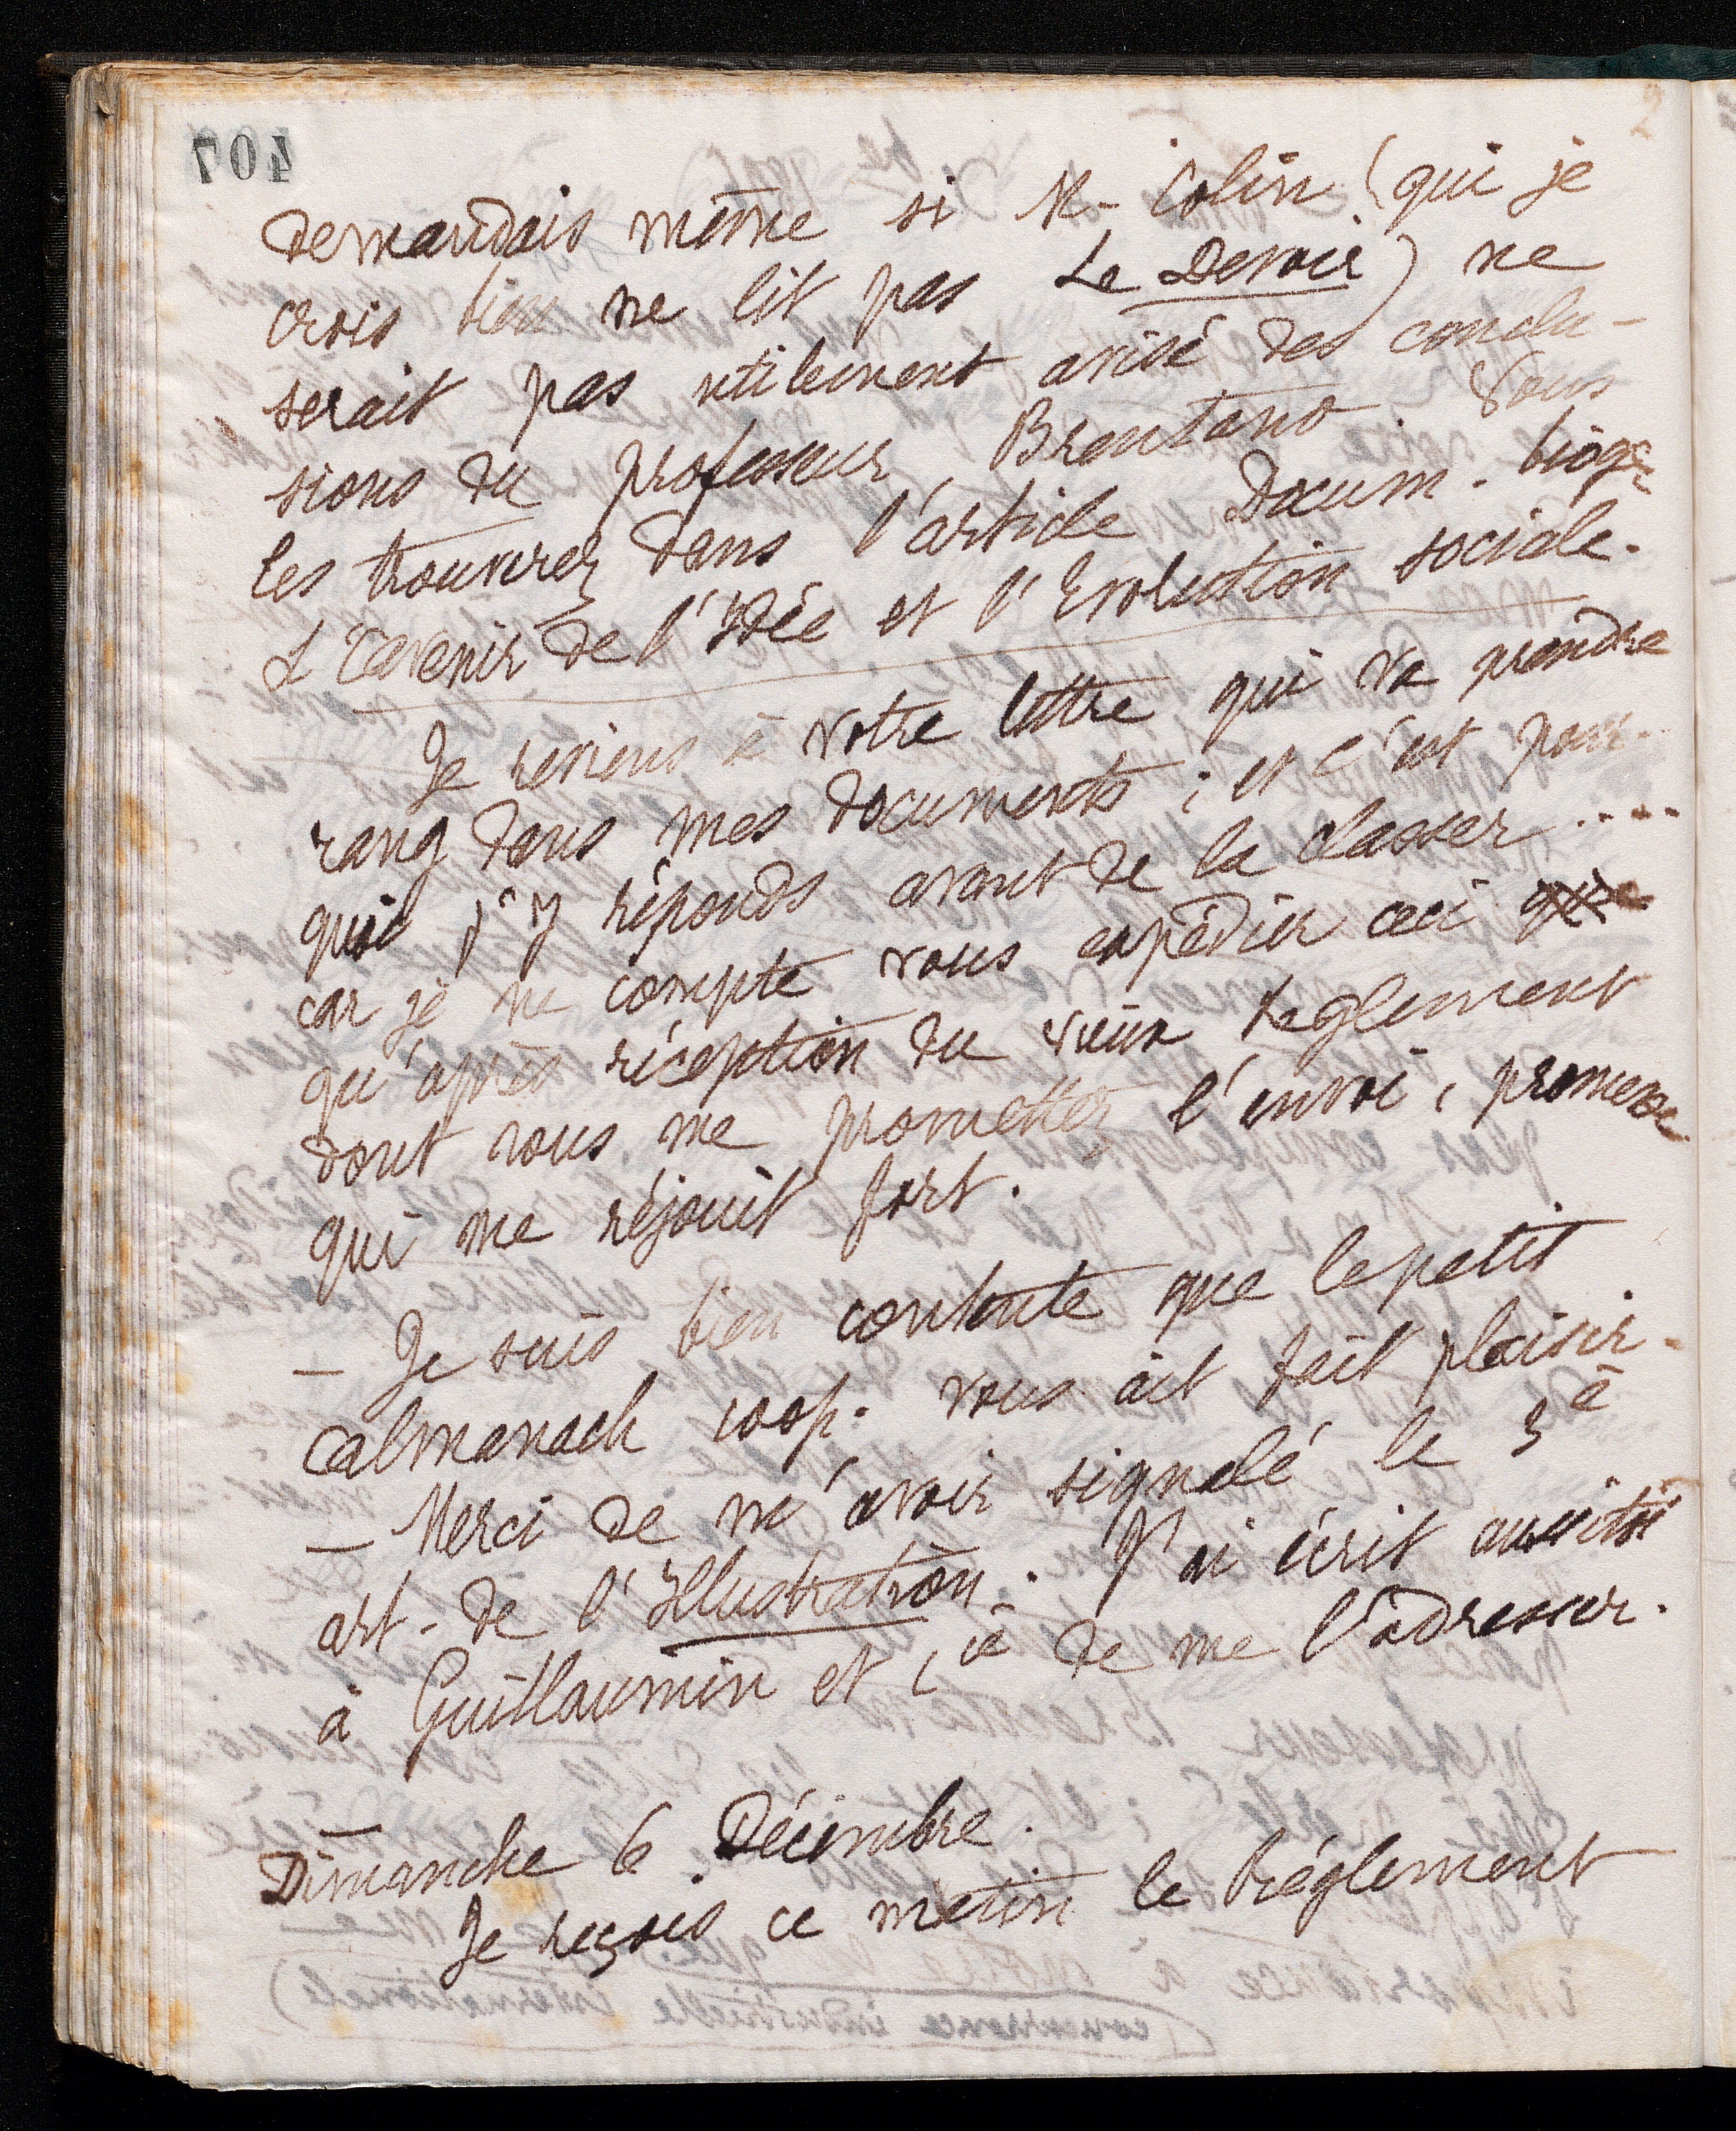 407
2
demandais même si M. Colin (qui je
crois bien ne lit pas Le Devoir) ne
serait pas utilement avisé des conclu-
sions du professeur Brentano. Vous
les trouverez dans l'article Docum. biogr
L'avenir de l'Idée et l'Evolution sociale.
Je reviens à votre lettre qui va prendre
rang dans mes documents ; et c'est pour-
quoi j'y réponds avant de la classer ....
car je ne compte vous expédier ceci
qu'après réception du vieux Règlement
dont vous me promettez l'envoi, promesse
qui me réjouit fort.
— Je suis bien contente que le petit
almanach coop. vous ait fait plaisir.
— Merci de m'avoir signalé le 3e
art. de l'Illustration. J'ai écrit aussitôt
à Guillaumin et Cie de me l'adresser.
Dimanche 6 Décembre.
Je reçois ce matin le Règlement
(concurrence industrielle internationale)